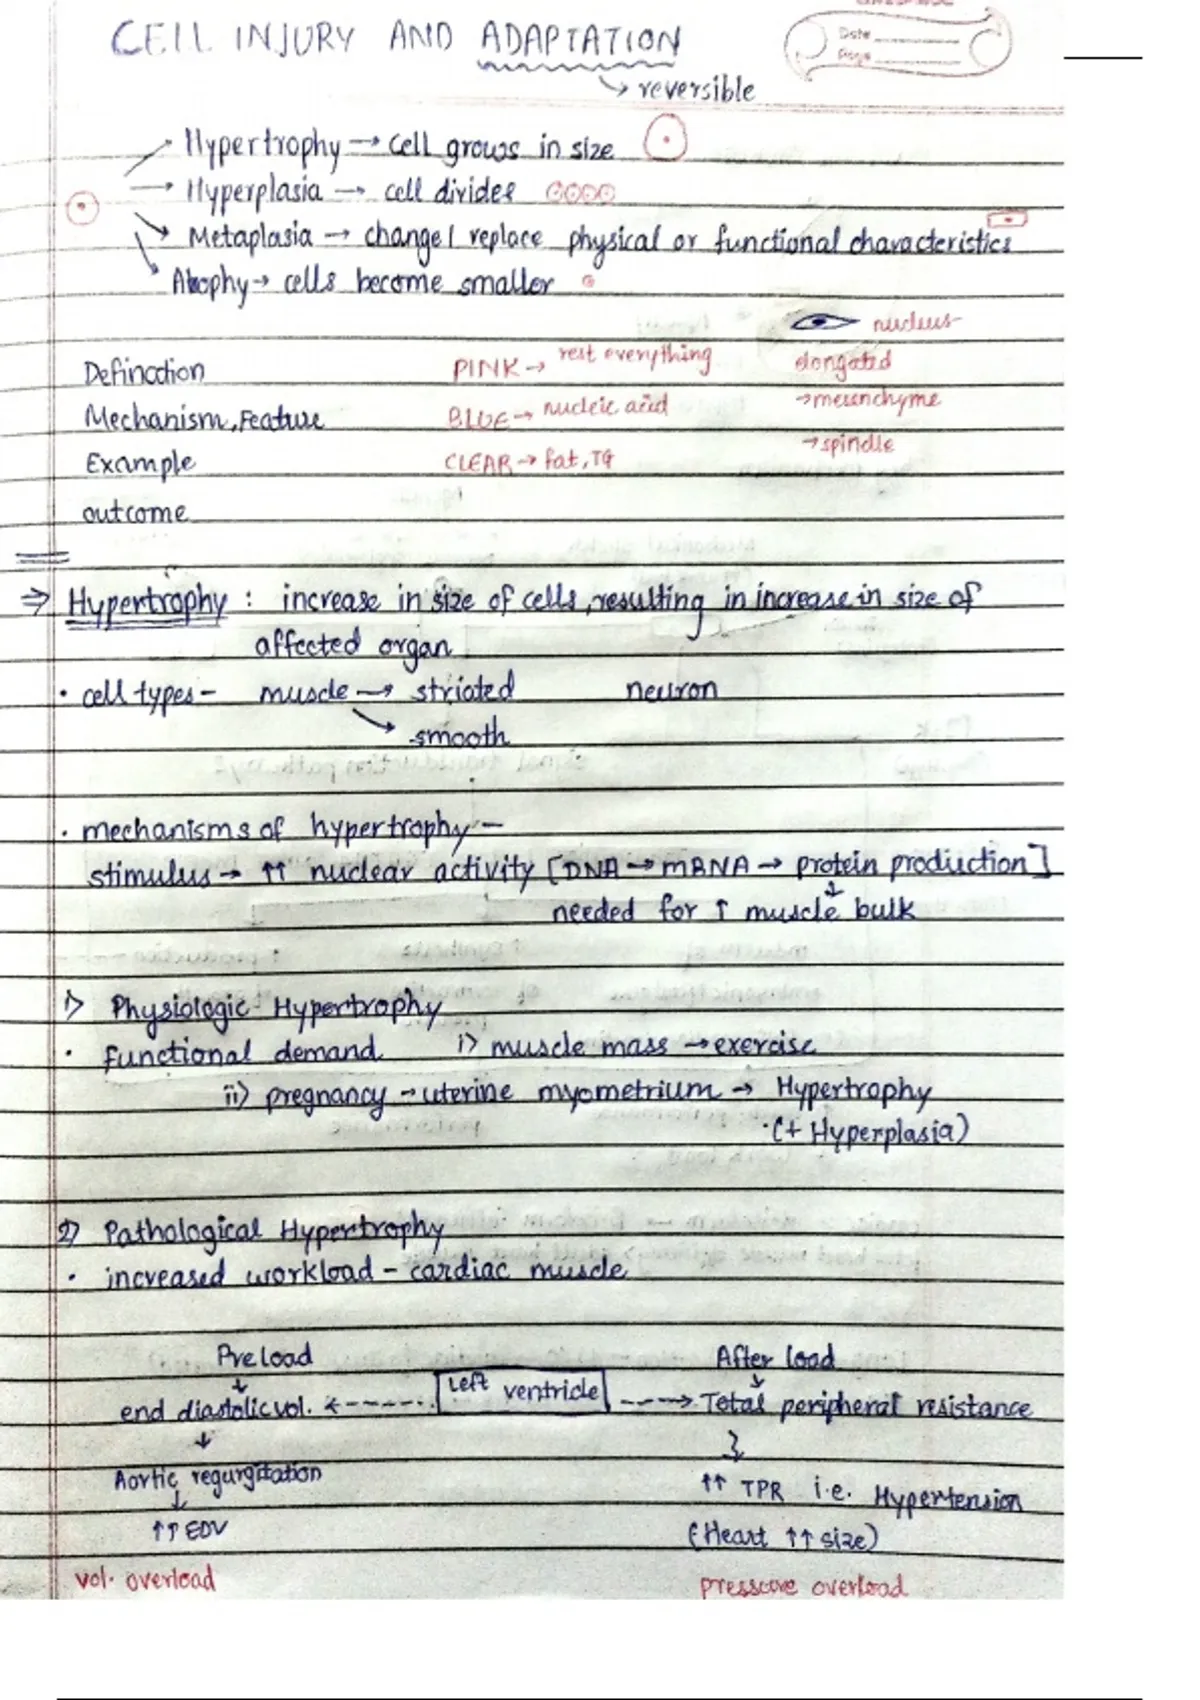 CELL INJURY AND ADAPTATION
Date
Page
→ reversible
Hypertrophy → cell grows in size
Hyperplasia → cell divides
Metaplasia → change/ replace physical or functional characteristics
Atrophy → cells become smaller
nucleus
Defination PINK → rest everything elongated
Mechanism, Feature BLUE → nucleic acid → mesenchyme
Example CLEAR → fat, TG → spindle
outcome
⇒ Hypertrophy : increase in size of cells, resulting in increase in size of
affected organ
• cell types - muscle → striated neuron
→ smooth
• mechanisms of hypertrophy -
stimulus → ↑↑ nuclear activity [DNA → mRNA → protein production]
↓
needed for ↑ muscle bulk
1) Physiologic Hypertrophy
• functional demand i) muscle mass → exercise
ii) pregnancy → uterine myometrium → Hypertrophy
(+ Hyperplasia)
2) Pathological Hypertrophy
• increased workload - cardiac muscle
Preload After load
↓ ↓
end diastolic vol. ← Left ventricle → Total peripheral resistance
↓ ↓
Aortic regurgitation ↑↑ TPR i.e. Hypertension
↓
↑↑ EDV (Heart ↑↑ size)
vol. overload pressure overload